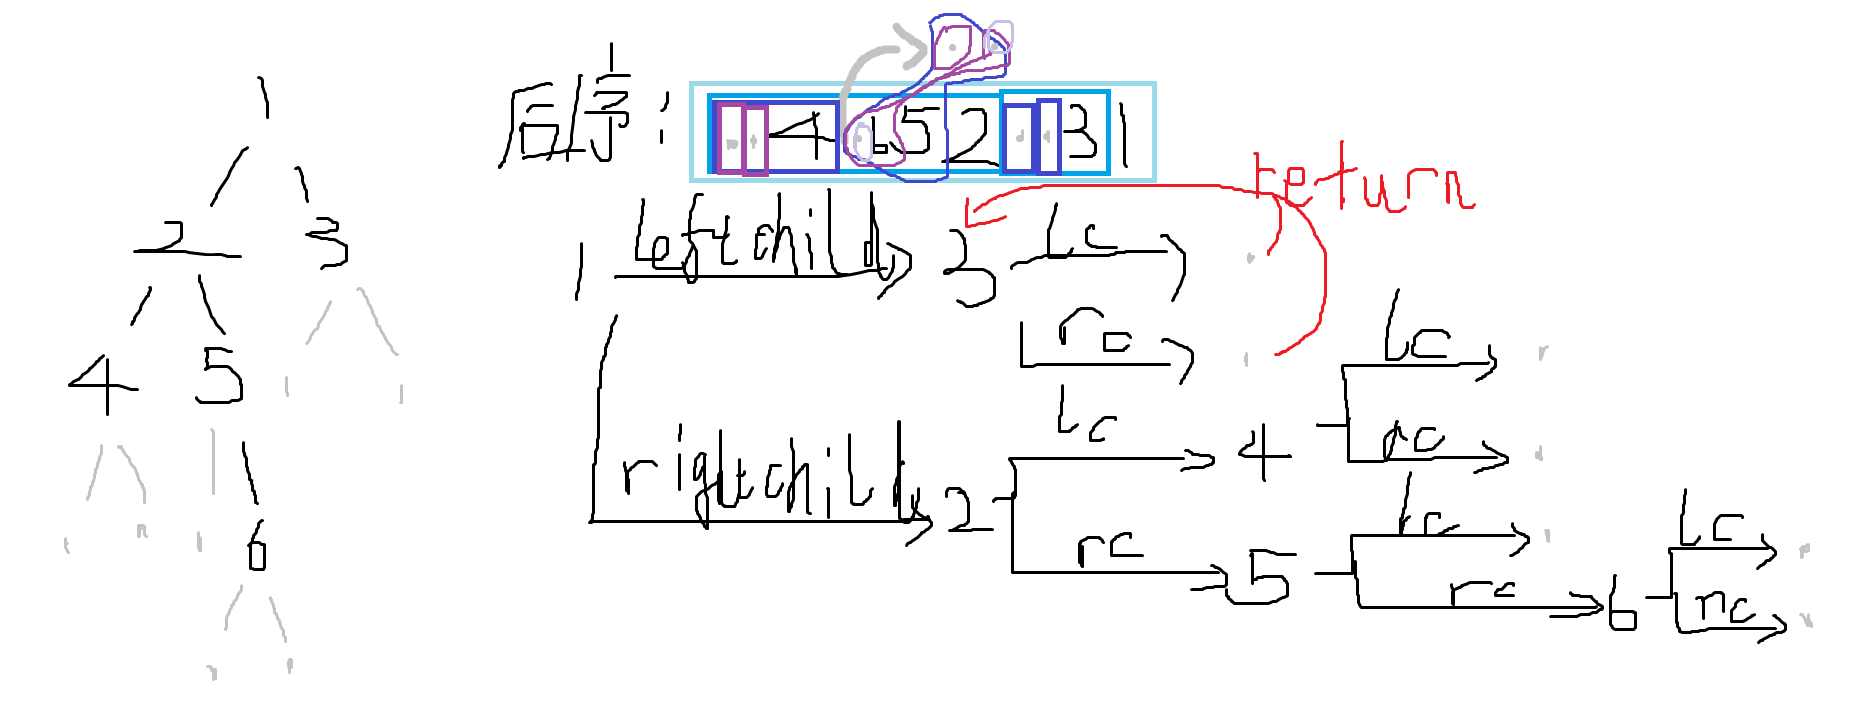 1
2 3
4 5
6
后序: 4 6 5 2 3 1
return
1 leftchild 3 lc
rc
rightchild 2 lc 4 lc
rc
rc 5 lc
rc 6 lc
rc